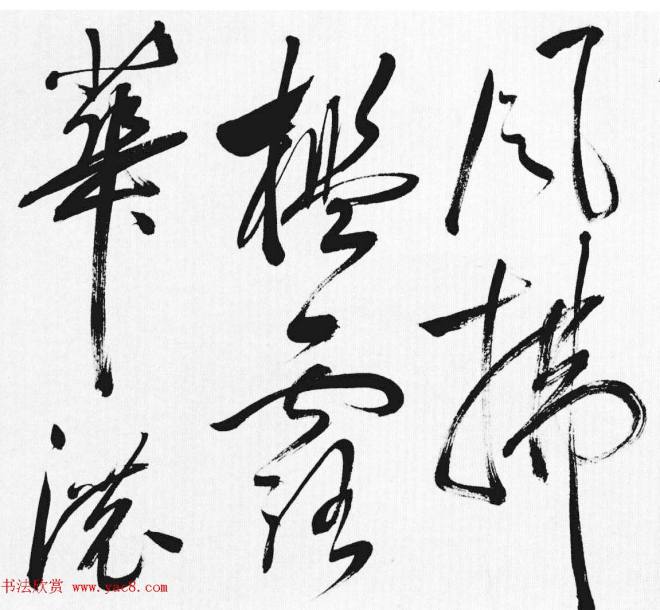 風拂
檻露
華濃
书法欣赏 www.yac8.com